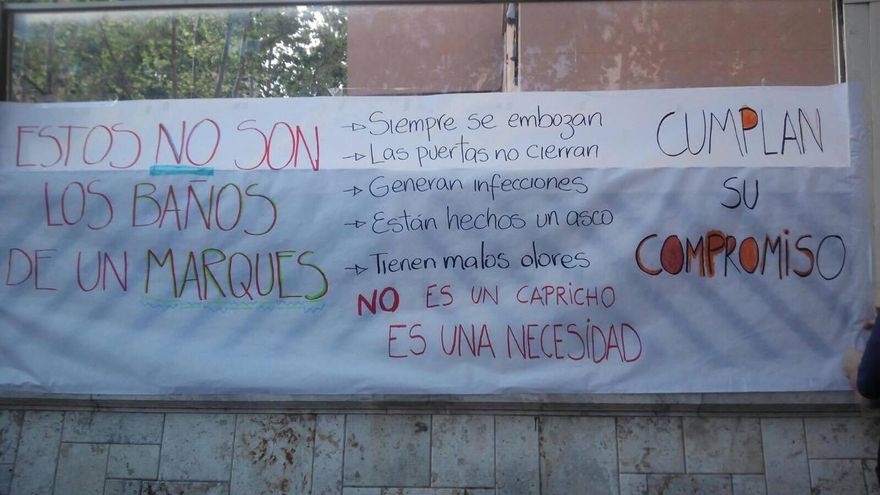 ESTOS NO SON
LOS BAÑOS
DE UN MARQUES
→ Siempre se embozan
→ Las puertas no cierran
→ Generan infecciones
→ Están hechos un asco
→ Tienen malos olores
NO ES UN CAPRICHO
ES UNA NECESIDAD
CUMPLAN
SU
COMPROMISO